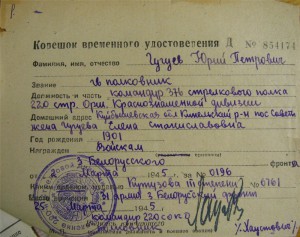 Корешок временного удостоверения Д № 854174
Фамилия, имя, отчество Гугуев Юрий Петрович
Звание гв полковник
Должность и часть командир 376 стрелкового полка
220 стр. Орш. Краснознаменной дивизии
Домашний адрес Куйбышевская обл Кинельский р-н пос Советы
жена Гугуева Елена Станиславовна
Год рождения 1901
Награжден
Войсками
3 Белорусского
от 2 Марта 1945 г. № 0196
Кутузова III степени № 0761
31 армия 3 Белорусский фронт
25 Марта 1945 г.
командир 220 сокд